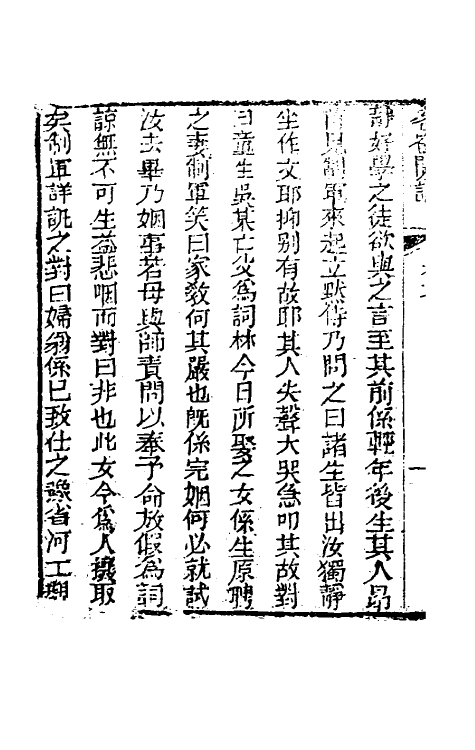 靜好學之徒欲與之言至其前係輕年後生其人昂
首見制軍來起立默待乃問之曰諸生皆出汝獨靜
坐作文耶抑別有故耶其人失聲大哭急叩其故對
曰童生吳某亡父為詞林今日所娶之女係生原聘
之妻制軍笑曰家敎何其嚴也旣係完姻何必就試
汝去畢乃姻事若母與師責問以奉予命放假為詞
諒無不可生益悲咽而對曰非也此女今為人攙取
矣制軍詳訊之對曰婦翁係已致仕之豫省河工